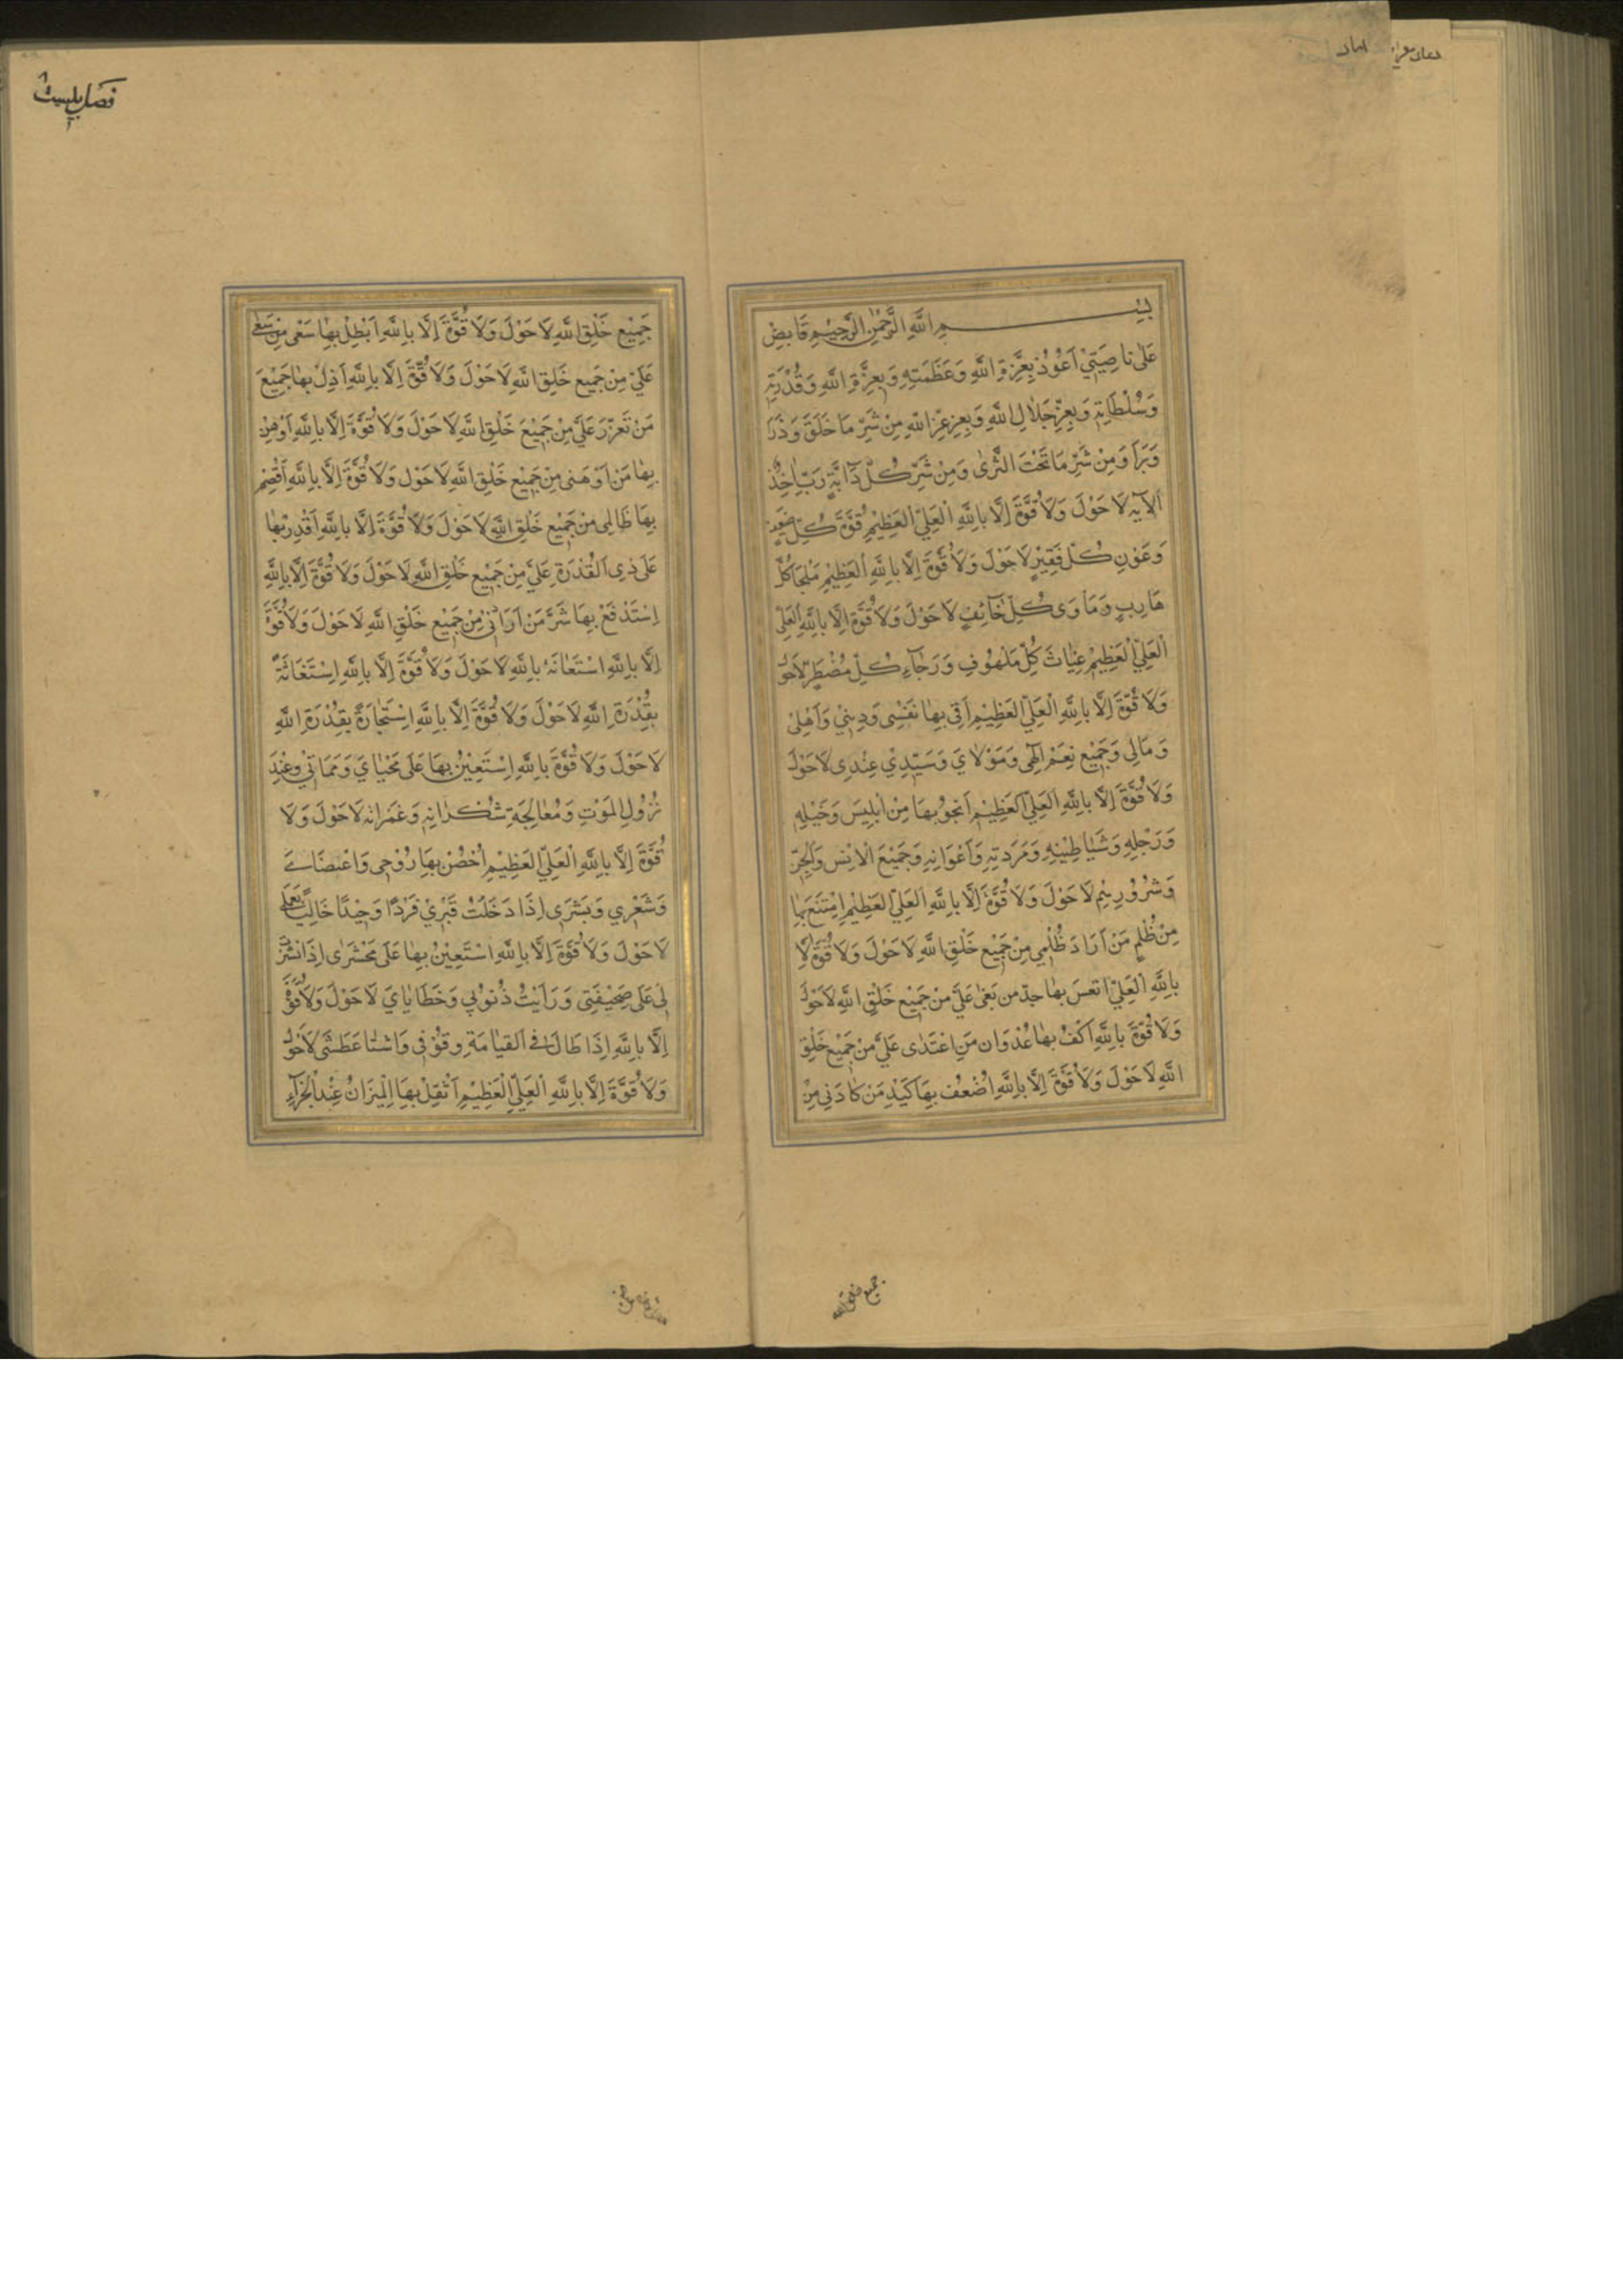 دعای
بِسْمِ اللَّهِ الرَّحْمٰنِ الرَّحِيْمِ قَابِضٌ
عَلٰى نَاصِيَتِيْ اَعُوْذُ بِعِزَّةِ اللَّهِ وَعَظَمَتِهِ وَبِعِزَّةِ اللَّهِ وَقُدْرَتِهِ
وَسُلْطَانِهِ وَبِعِزِّ جَلَالِ اللَّهِ وَبِعِزِ عِزِّ اللَّهِ مِنْ شَرِّ مَا خَلَقَ وَذَرَأ
وَبَرَأَ وَمِنْ شَرِّ مَا تَحْتَ الثَّرٰى وَمِنْ شَرِّ كُلِّ دَآبَّةٍ رَبِّيْ اٰخِذٌ
اَلْآيَه لَا حَوْلَ وَلَا قُوَّةَ اِلَّا بِاللَّهِ الْعَلِيِّ الْعَظِيْمِ قُوَّةَ كُلِّ ضَعِيْفٍ
وَعَوْنِ كُلِّ فَقِيْرٍ لَا حَوْلَ وَلَا قُوَّةَ اِلَّا بِاللَّهِ الْعَظِيْمِ مَلْجَأ كُلِّ
هَارِبٍ وَمَأوٰى كُلِّ خَآئِفٍ لَا حَوْلَ وَلَا قُوَّةَ اِلَّا بِاللَّهِ الْعَلِيِّ
الْعَلِيِّ الْعَظِيْمِ غِيَاثَ كُلِّ مَلْهُوْفٍ وَرَجَآءِ كُلِّ مُضْطَرٍّ لَا حَوْلَ
وَلَا قُوَّةَ اِلَّا بِاللَّهِ الْعَلِيِّ الْعَظِيْمِ اَقِيْ بِهَا نَفْسِى وَدِيْنِيْ وَاَهْلِىْ
وَمَالِى وَجَمِيْعِ نِعَمْ اِلٰهِى وَمَوْلَايَ وَسَيِّدِيْ عِنْدِى لَا حَوْلَ
وَلَا قُوَّةَ اِلَّا بِاللَّهِ الْعَلِيِّ الْعَظِيْمِ اَنْجُوْ بِهَا مِنْ اِبْلِيْسَ وَخَيْلِهِ
وَرَجْلِهِ وَشَيَاطِيْنِهِ وَمَرَدَتِهِ وَاَعْوَانِهِ وَجَمِيْعِ الْاِنْسِ وَالْجِنِّ
وَشُرُوْرِهِمْ لَا حَوْلَ وَلَا قُوَّةَ اِلَّا بِاللَّهِ الْعَلِيِّ الْعَظِيْمِ اِمْتَنَعَ بِهَا
مِنْ ظُلْمِ مَنْ اَرَادَ ظُلْمِى مِنْ جَمِيْعِ خَلْقِ اللَّهِ لَا حَوْلَ وَلَا قُوَّةَ اِلَّا
بِاللَّهِ الْعَلِيِّ اَتْعَسَ بِهَا جِدَّ مَنْ بَغٰى عَلَيَّ مِنْ جَمِيْعِ خَلْقِ اللَّهِ لَا حَوْلَ
وَلَا قُوَّةَ بِاللَّهِ اَكُفُّ بِهَا عُدْوَانَ مَنِ اعْتَدٰى عَلَيَّ مِنْ جَمِيْعِ خَلْقِ
اللَّهِ لَا حَوْلَ وَلَا قُوَّةَ اِلَّا بِاللَّهِ اُضْعُفْ بِهَا كَيْدَ مَنْ كَادَنِى مِنْ
جمیع خلق الله
جَمِيْعِ خَلْقِ اللَّهِ لَا حَوْلَ وَلَا قُوَّةَ اِلَّا بِاللَّهِ اَبْطِلْ بِهَا سَعْىَ مَنْ سَعٰى
عَلَيَّ مِنْ جَمِيعِ خَلْقِ اللَّهِ لَا حَوْلَ وَلَا قُوَّةَ اِلَّا بِاللَّهِ اَذِلُّ بِهَا جَمِيْعَ
مَنْ تَعَزَّزَ عَلَيَّ مِنْ جَمِيْعِ خَلْقِ اللَّهِ لَا حَوْلَ وَلَا قُوَّةَ اِلَّا بِاللَّهِ اَوْهِنْ
بِهَا مَنْ اَوْهَنَنِى مِنْ جَمِيْعِ خَلْقِ اللَّهِ لَا حَوْلَ وَلَا قُوَّةَ اِلَّا بِاللَّهِ اَقْصِمُ
بِهَا ظَالِمِى مِنْ جَمِيْعِ خَلْقِ اللَّهِ لَا حَوْلَ وَلَا قُوَّةَ اِلَّا بِاللَّهِ اَقْدِرُ بِهَا
عَلٰى ذِى الْقُدْرَةِ عَلَيَّ مِنْ جَمِيْعِ خَلْقِ اللَّهِ لَا حَوْلَ وَلَا قُوَّةَ اِلَّا بِاللَّهِ
اِسْتَدْفَعْ بِهَا شَرَّ مَنْ اَرَادَنِىْ مِنْ جَمِيْعِ خَلْقِ اللَّهِ لَا حَوْلَ وَلَا قُوَّةَ
اِلَّا بِاللَّهِ اسْتَعَانَةً بِاللَّهِ لَا حَوْلَ وَلَا قُوَّةَ اِلَّا بِاللَّهِ اِسْتَغَاثَةً
بِقُدْرَةِ اللَّهِ لَا حَوْلَ وَلَا قُوَّةَ اِلَّا بِاللَّهِ اِسْتَجَارَةً بِقُدْرَةِ اللَّهِ
لَا حَوْلَ وَلَا قُوَّةَ بِاللَّهِ اِسْتَعِيْنُ بِهَا عَلٰى مَحْيَايَ وَمَمَاتِىْ وَعِنْدَ
نُزُوْلِ الْمَوْتِ وَمُعَالِجَةِ سَكَرَانِهِ وَغَمَرَاتِهِ لَا حَوْلَ وَلَا
قُوَّةَ اِلَّا بِاللَّهِ الْعَلِيِّ الْعَظِيْمِ اُحْصُنْ بِهَا رُوْحِى وَاَعْضَائِىْ
وَشَعْرِيْ وَبَشَرِى اِذَا دَخَلْتُ قَبْرِيْ فَرْدًا وَحِيْدًا خَالِيًا بِعَمَلِى
لَا حَوْلَ وَلَا قُوَّةَ اِلَّا بِاللَّهِ اسْتَعِيْنُ بِهَا عَلٰى مَحْشَرِى اِذَا نُشِرَتْ
لِى عَلٰى صَحِيْفَتِى وَرَاَيْتُ ذُنُوْبِى وَخَطَايَايَ لَا حَوْلَ وَلَا قُوَّةَ
اِلَّا بِاللَّهِ اِذَا طَالَ فِى الْقِيَامَةِ وُقُوْفِى وَاشْتَدَّ عَطَشِى لَا حَوْلَ
وَلَا قُوَّةَ اِلَّا بِاللَّهِ الْعَلِيِّ الْعَظِيْمِ اَثْقِلْ بِهَا الْمِيْزَانَ عِنْدَ الْجَزَآءِ